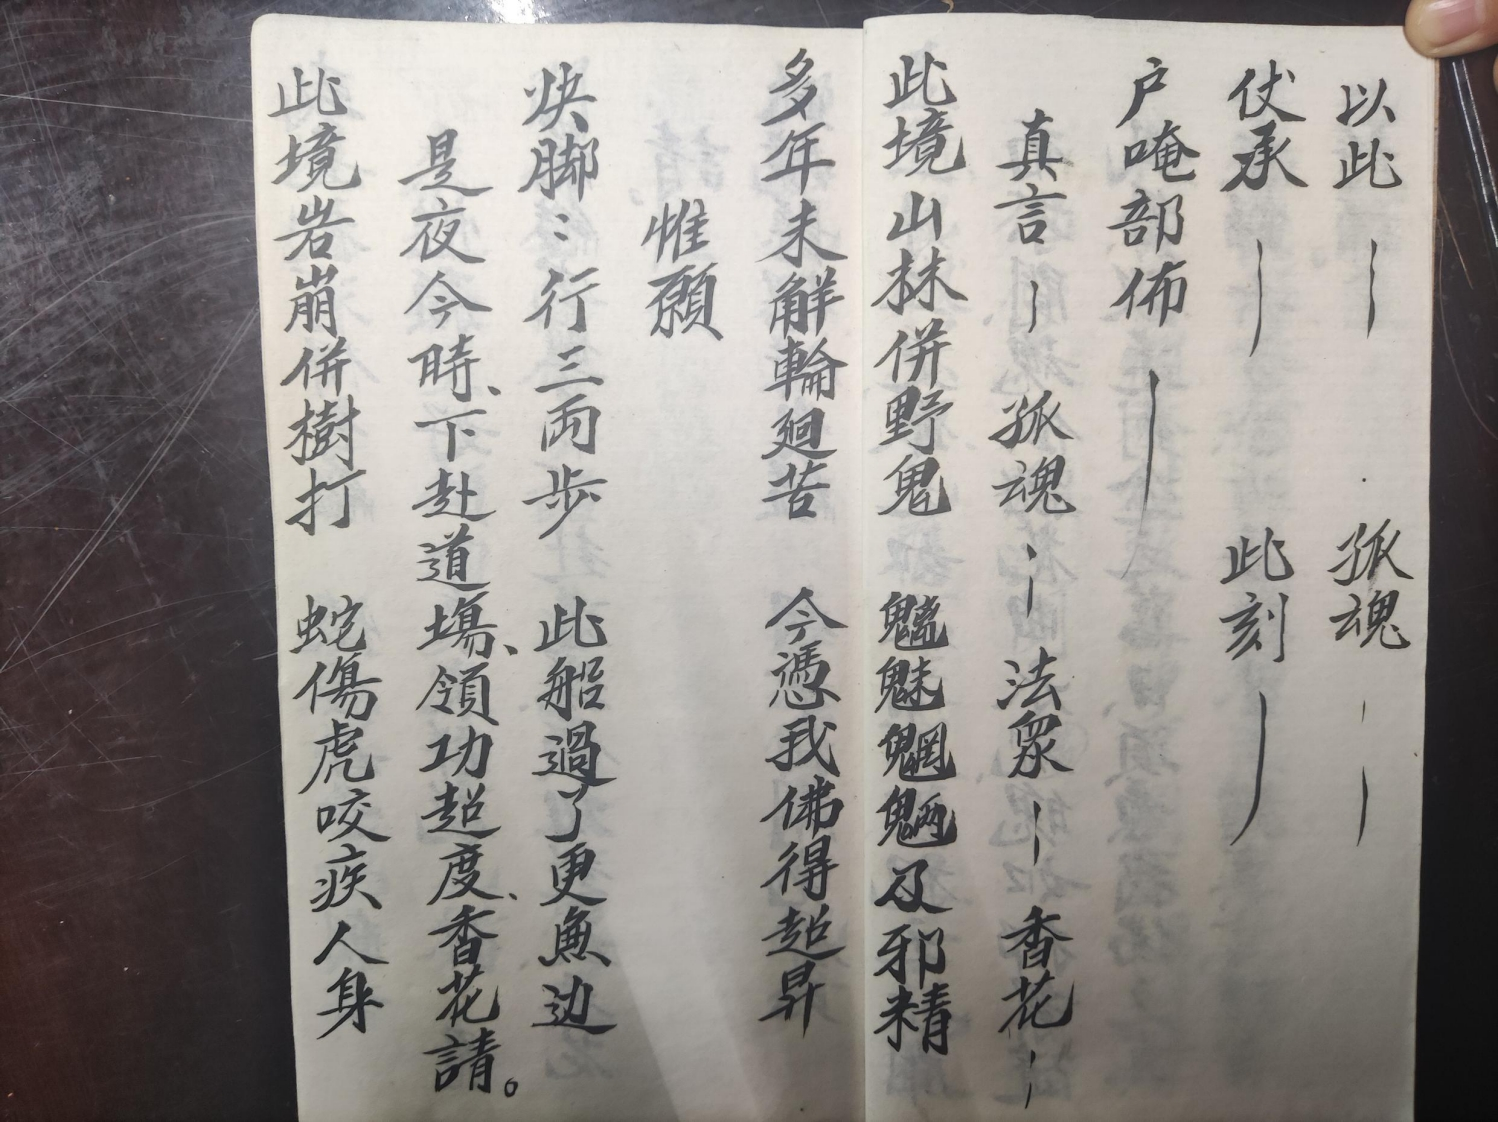 以此｜　孤魂｜｜
伏承｜　此刻｜
户唵部佈｜
真言｜孤魂｜法衆｜香花｜
此境山林併野鬼　魑魅魍魎及邪精
多年未解輪廻苦　今憑我佛得超昇
惟願
快脚：行三両步　此船過了更魚边
是夜今時、下赴道塲、領功超度、香花請。
此境岩崩併樹打　蛇傷虎咬疾人身